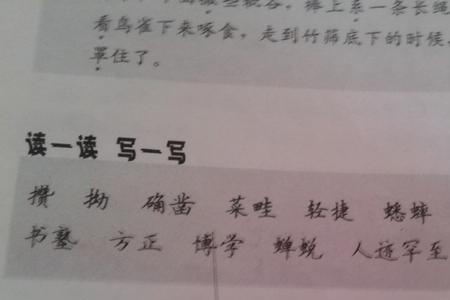 棒上系一条长绳
看鸟雀下来啄食，走到竹筛底下的时候，
罩住了。
读一读 写一写
攒 拗 确凿 菜畦 轻捷 蟋蟀
书塾 方正 博学 蝉蜕 人迹罕至